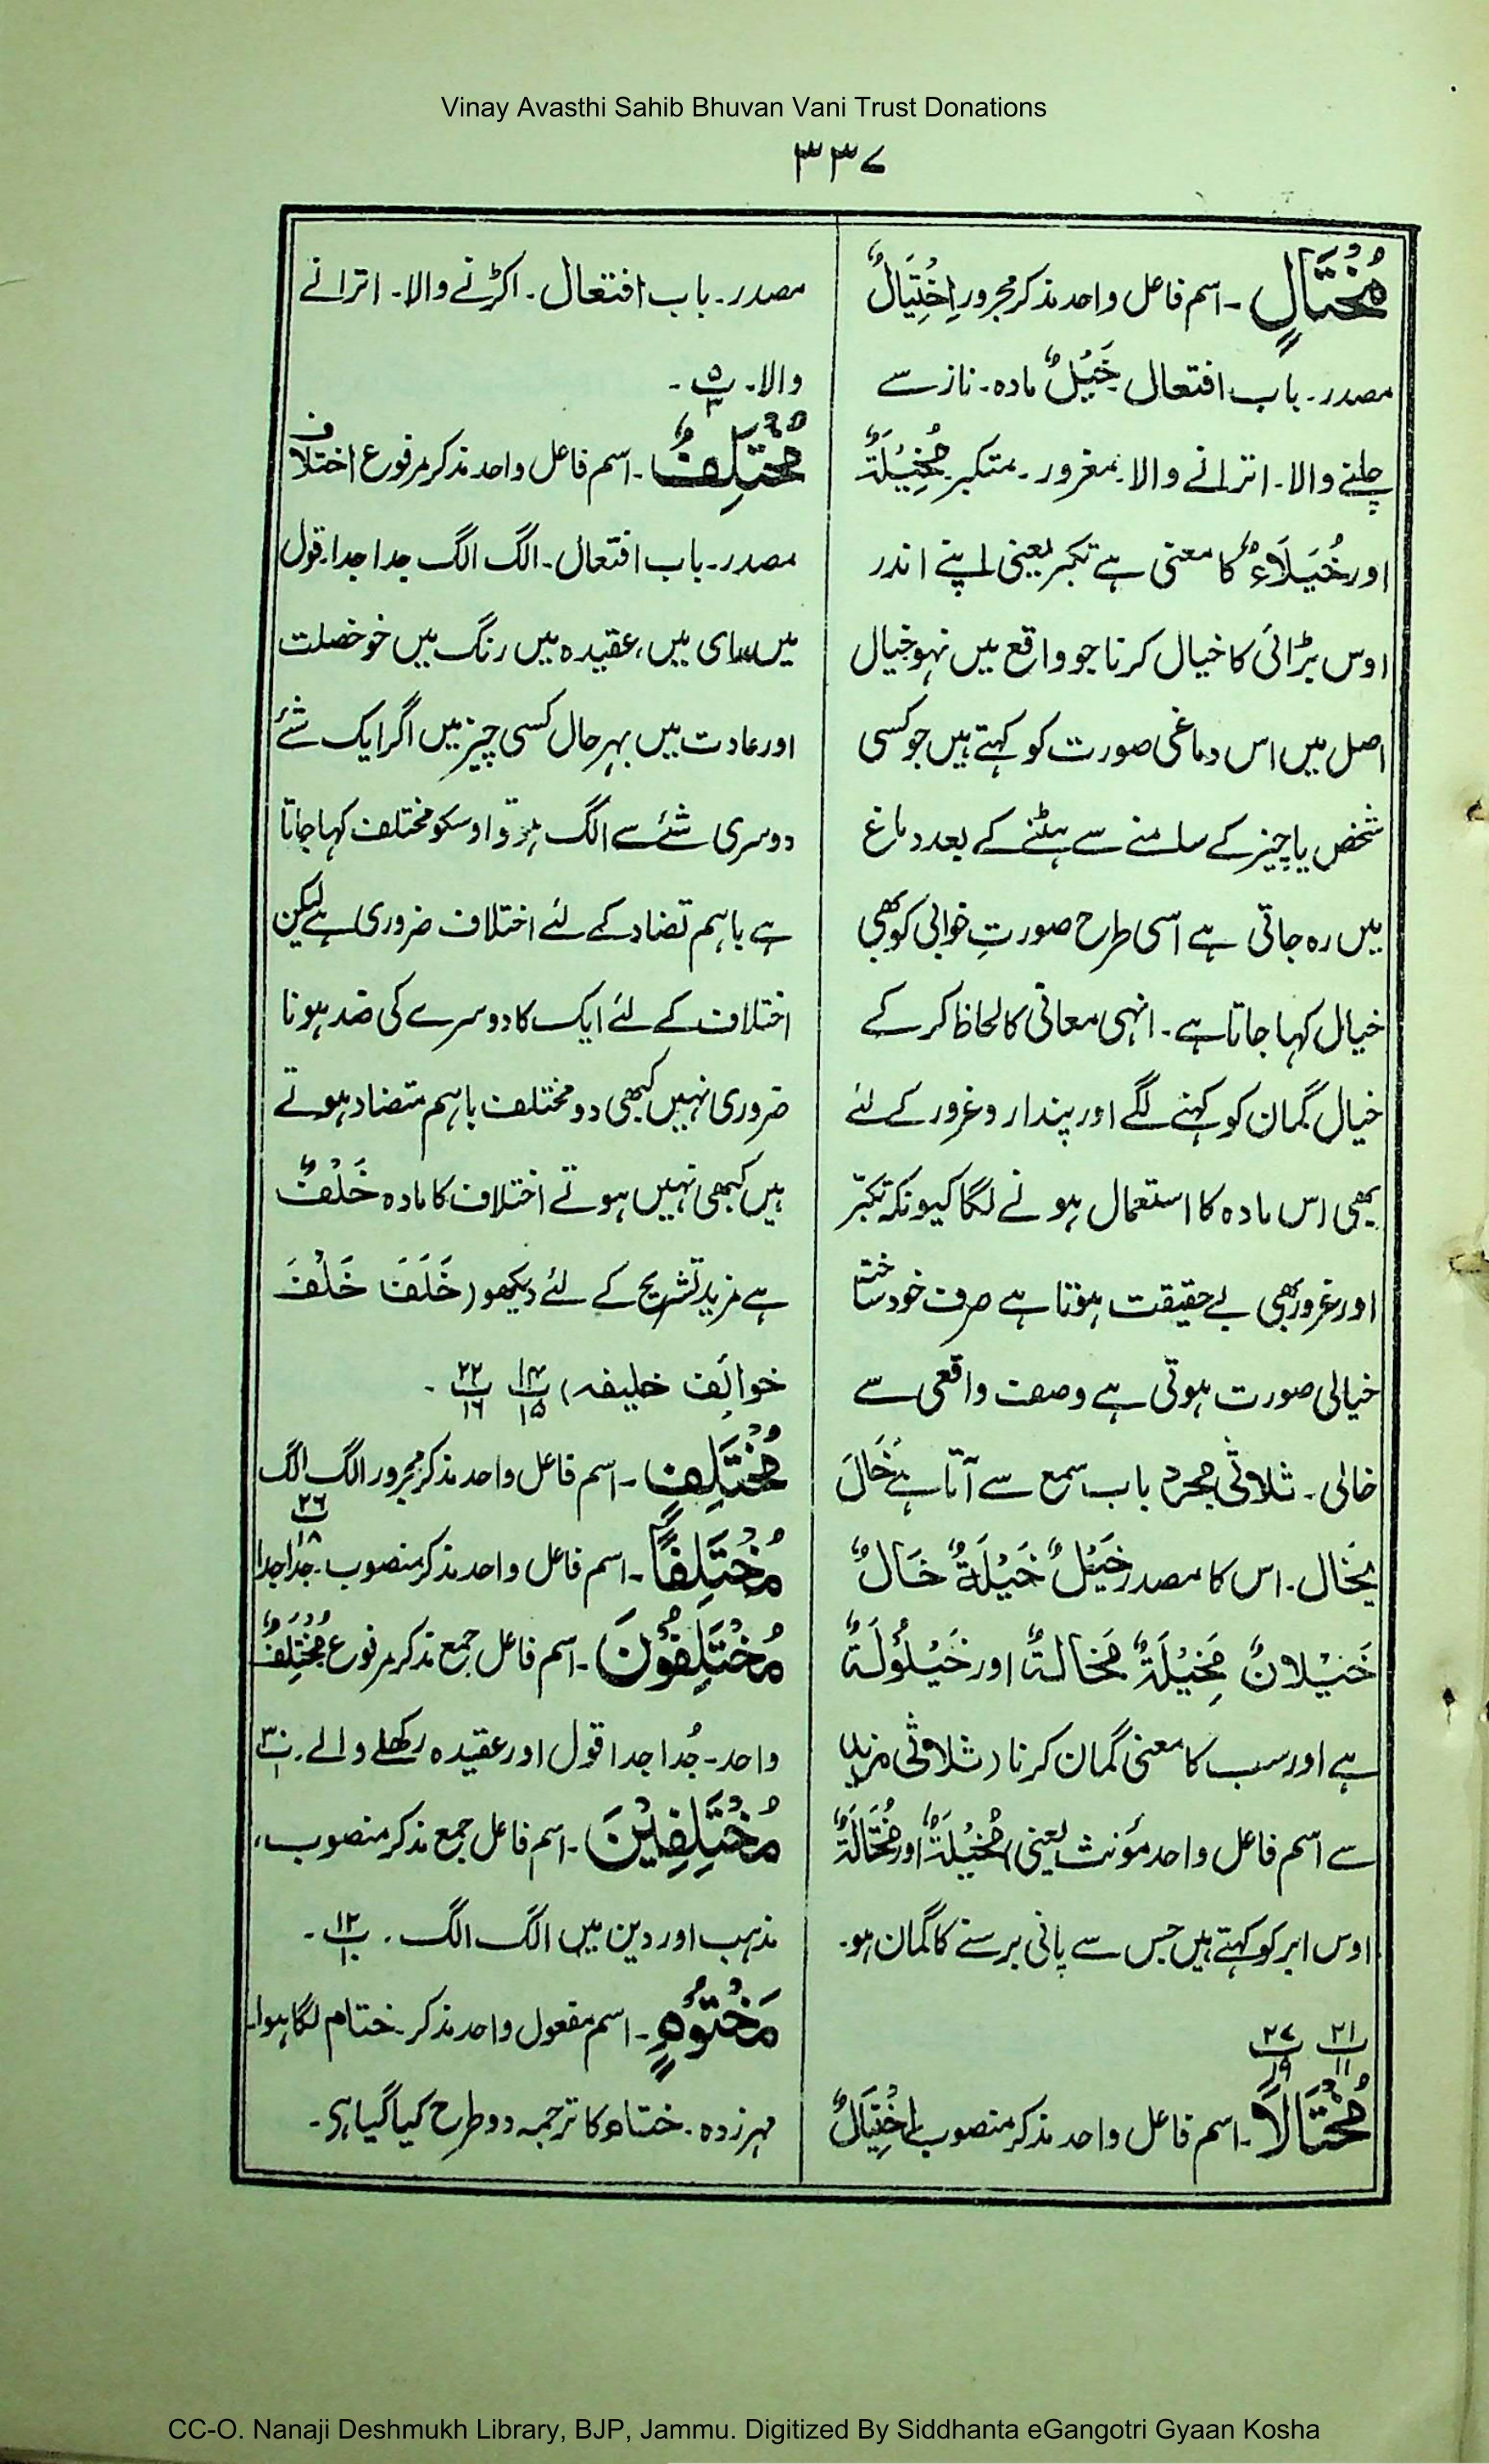 Vinay Avasthi Sahib Bhuvan Vani Trust Donations
۳۳۷
مُخْتَالٍ۔ اسم فاعل واحد مذکر مجرور اِخْتِیَالٌ
مصدر۔ باب افتعال خَیْلٌ مادہ۔ ناز سے
چلنے والا۔ اترانے والا۔ مغرور۔ متکبر۔ مَخِیْلَۃٌ
اور خُیَلَاءُ کا معنی ہے تکبر یعنی اپنے اندر
اوس بڑائی کا خیال کرنا جو واقع میں نہو خیال
اصل میں اس دماغی صورت کو کہتے ہیں جو کسی
شخص یا چیز کے سامنے سے ہٹنے کے بعد دماغ
میں رہ جاتی ہے اسی طرح صورتِ خوابی کو بھی
خیال کہا جاتا ہے۔ انہی معانی کا لحاظ کر کے
خیال گمان کو کہنے لگے اور پندار و غرور کے لئے
بھی اس مادہ کا استعمال ہونے لگا کیونکہ تکبّر
اور غرور بھی بے حقیقت ہوتا ہے صرف خود ساختہ
خیالی صورت ہوتی ہے وصف واقعی سے
خالی۔ ثلاثی مجرد باب سمع سے آتا ہے خَالَ
یَخَال۔ اس کا مصدر خَیْلٌ خَیْلَۃٌ خَالٌ
خَیْلانٌ مَخِیْلَۃٌ مَخالۃٌ اور خَیْلُوْلَۃٌ
ہے اور سب کا معنی گمان کرنا (ثلاثی مزید
سے اسم فاعل واحد مؤنث یعنی) مُخِیْلَۃٌ اور مُخْتَالَۃٌ
اوس ابر کو کہتے ہیں جس سے پانی برسنے کا گمان ہو۔
۲۱/۱۱ ۲۷/۱۹
مُخْتَالًا۔ اسم فاعل واحد مذکر منصوب اِخْتِیَالٌ
مصدر۔ باب افتعال۔ اکڑنے والا۔ اترانے
والا۔ ۵/۳۔
مُخْتَلِفٌ۔ اسم فاعل واحد مذکر مرفوع اختلاف
مصدر۔ باب افتعال۔ الگ الگ جدا جدا۔ قول
میں، رای میں، عقیدہ میں رنگ میں خو خصلت
اور عادت میں بہر حال کسی چیز میں اگر ایک شئے
دوسری شئے سے الگ ہو تو اوسکو مختلف کہا جاتا
ہے باہم تضاد کے لئے اختلاف ضروری ہے لیکن
اختلاف کے لئے ایک کا دوسرے کی ضد ہونا
ضروری نہیں کبھی دو مختلف باہم متضاد ہوتے
ہیں کبھی نہیں ہوتے اختلاف کا مادہ خَلْفٌ
ہے مزید تشریح کے لئے دیکھو (خَلَفَ خَلْفَ
خوالِف خلیفہ) ۱۴/۱۵ ۲۲/۱۶۔
مُخْتَلِفٍ۔ اسم فاعل واحد مذکر مجرور الگ الگ
۲۶/۱۸
مُخْتَلِفًا۔ اسم فاعل واحد مذکر منصوب۔ جدا جدا
مُخْتَلِفُوْنَ۔ اسم فاعل جمع مذکر مرفوع مُخْتَلِفٌ
واحد۔ جُدا جدا قول اور عقیدہ رکھنے والے۔ ۳۰/۱
مُخْتَلِفِیْنَ۔ اسم فاعل جمع مذکر منصوب،
مذہب اور دین میں الگ الگ۔ ۱۲/۱۰۔
مَخْتُوْمٍ۔ اسم مفعول واحد مذکر۔ ختام لگا ہوا۔
مہر زدہ۔ ختام کا ترجمہ دو طرح کیا گیا ہی۔
CC-O. Nanaji Deshmukh Library, BJP, Jammu. Digitized By Siddhanta eGangotri Gyaan Kosha